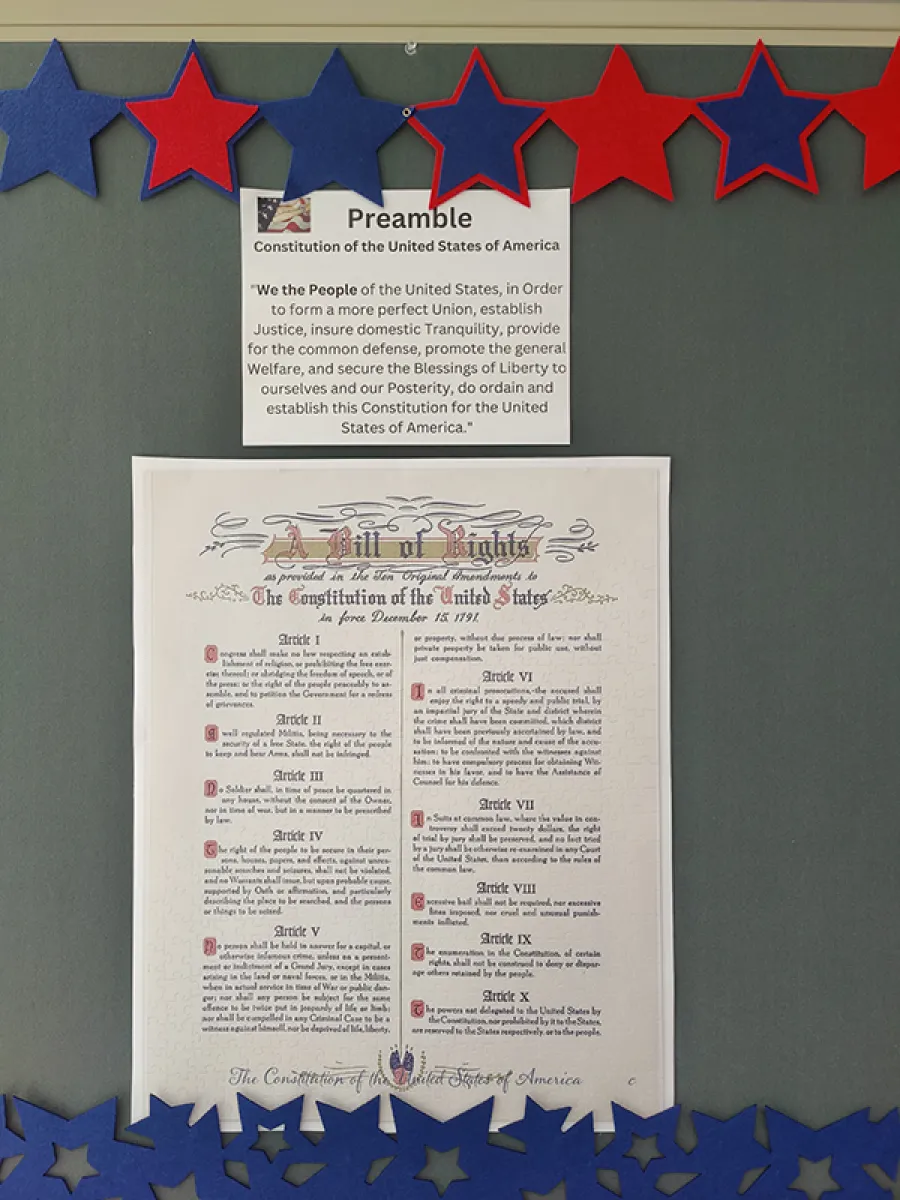 Preamble
Constitution of the United States of America
"We the People of the United States, in Order
to form a more perfect Union, establish
Justice, insure domestic Tranquility, provide
for the common defense, promote the general
Welfare, and secure the Blessings of Liberty to
ourselves and our Posterity, do ordain and
establish this Constitution for the United
States of America."
A Bill of Rights
as provided in the Ten Original Amendments to
The Constitution of the United States
in force December 15, 1791.
Article I
Congress shall make no law respecting an estab-
lishment of religion, or prohibiting the free exer-
cise thereof; or abridging the freedom of speech, or of
the press; or the right of the people peaceably to as-
semble, and to petition the Government for a redress
of grievances.
Article II
A well regulated Militia, being necessary to the
security of a free State, the right of the people
to keep and bear Arms, shall not be infringed.
Article III
No Soldier shall, in time of peace be quartered in
any house, without the consent of the Owner,
nor in time of war, but in a manner to be prescribed
by law.
Article IV
The right of the people to be secure in their per-
sons, houses, papers, and effects, against unrea-
sonable searches and seizures, shall not be violated,
and no Warrants shall issue, but upon probable cause,
supported by Oath or affirmation, and particularly
describing the place to be searched, and the persons
or things to be seized.
Article V
No person shall be held to answer for a capital, or
otherwise infamous crime, unless on a present-
ment or indictment of a Grand Jury, except in cases
arising in the land or naval forces, or in the Militia,
when in actual service in time of War or public dan-
ger; nor shall any person be subject for the same
offence to be twice put in jeopardy of life or limb;
nor shall be compelled in any Criminal Case to be a
witness against himself, nor be deprived of life, liberty,
or property, without due process of law; nor shall
private property be taken for public use, without
just compensation.
Article VI
In all criminal prosecutions, the accused shall
enjoy the right to a speedy and public trial, by
an impartial jury of the State and district wherein
the crime shall have been committed, which district
shall have been previously ascertained by law, and
to be informed of the nature and cause of the accu-
sation; to be confronted with the witnesses against
him; to have compulsory process for obtaining Wit-
nesses in his favor, and to have the Assistance of
Counsel for his defence.
Article VII
In Suits at common law, where the value in con-
troversy shall exceed twenty dollars, the right
of trial by jury shall be preserved, and no fact tried
by a jury shall be otherwise re-examined in any Court
of the United States, than according to the rules of
the common law.
Article VIII
Excessive bail shall not be required, nor excessive
fines imposed, nor cruel and unusual punish-
ments inflicted.
Article IX
The enumeration in the Constitution, of certain
rights, shall not be construed to deny or dispar-
age others retained by the people.
Article X
The powers not delegated to the United States by
the Constitution, nor prohibited by it to the States,
are reserved to the States respectively, or to the people.
The Constitution of the United States of America
c